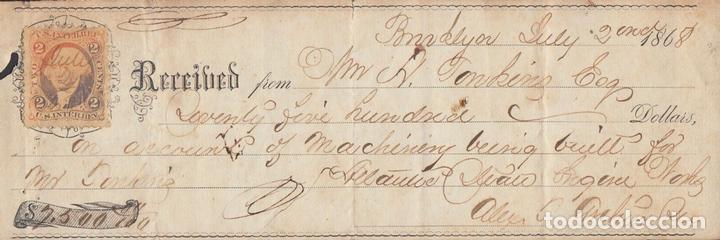 U.S. INTER. REV.
2 2
TWO CENTS
2 2
U.S. INTER. REV.
Brooklyn July 2nd 1868
Received from Wm A. Tonking Esq
Seventy five hundred Dollars,
on account of Machinery being built for
Mr Tonking Atlantic Steam Engine Works
$7500 00/100 Alex
todocoleccion